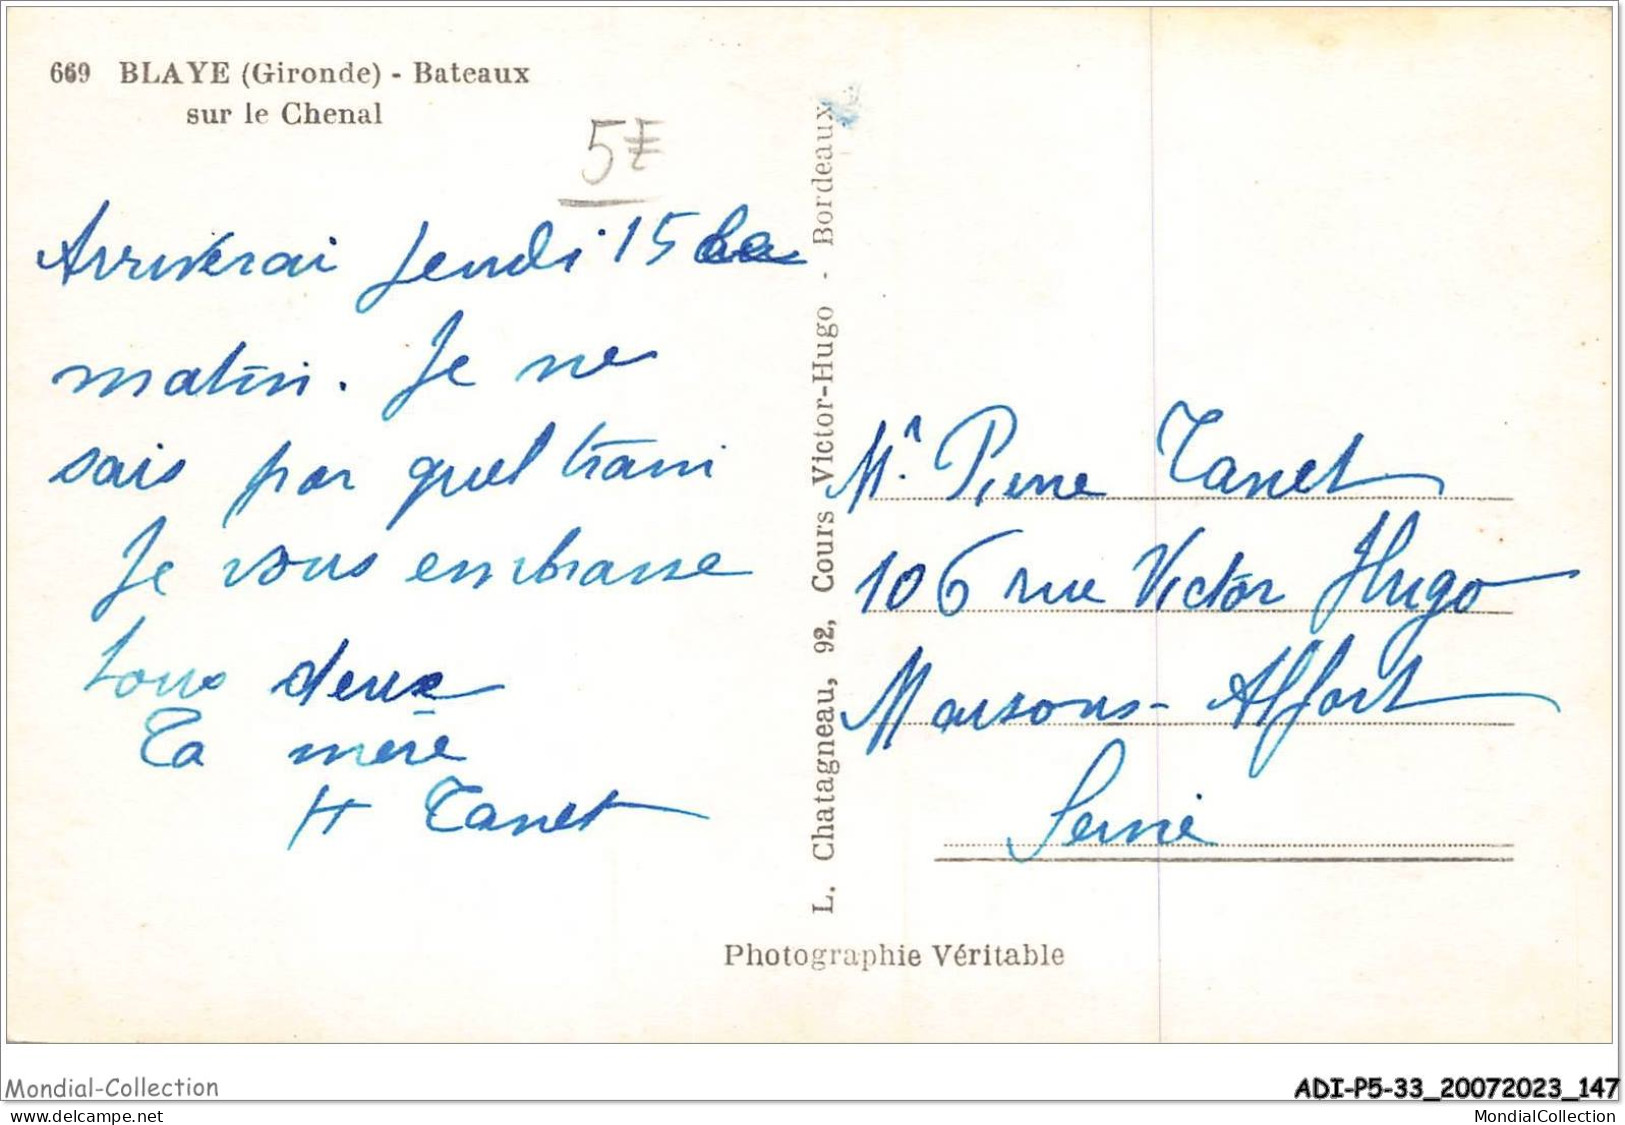 669 BLAYE (Gironde) - Bateaux
sur le Chenal
5€
Arriverai jeudi 15
matin. Je ne
sais par quel train
Je vous embrasse
tous deux
Ta mère
H Tanet
L. Chatagneau, 92, Cours Victor-Hugo - Bordeaux
Mr. Pierre Tanet
106 rue Victor Hugo
Maisons-Alfort
Seine
Photographie Véritable
Mondial-Collection
ADI-P5-33_20072023_147
www.delcampe.net
MondialCollection